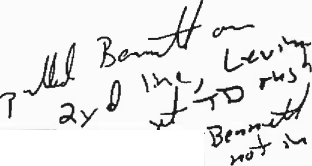 Pulled Bennett on
2yd line, Leving
at TD rush
Bennett
not in